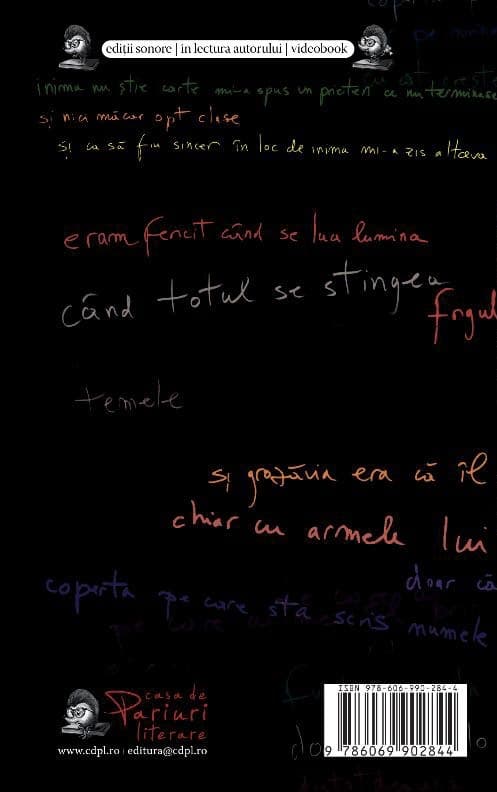 coperta
pe
ediții sonore | în lectura autorului | videobook
inima nu știe carte mi-a spus un prieten ce nu terminase
și nici măcar opt clase
și ca să fiu sincer în loc de inima mi-a zis altceva
eram fericit când se lua lumina
când totul se stingea
frigul
temele
și grozăvia era că îl
chiar cu armele lui
doar că
coperta pe care stă scris numele
pe care
casa de
Pariuri
literare
www.cdpl.ro | editura@cdpl.ro
ISBN 978-606-990-284-4
9 786069 902844